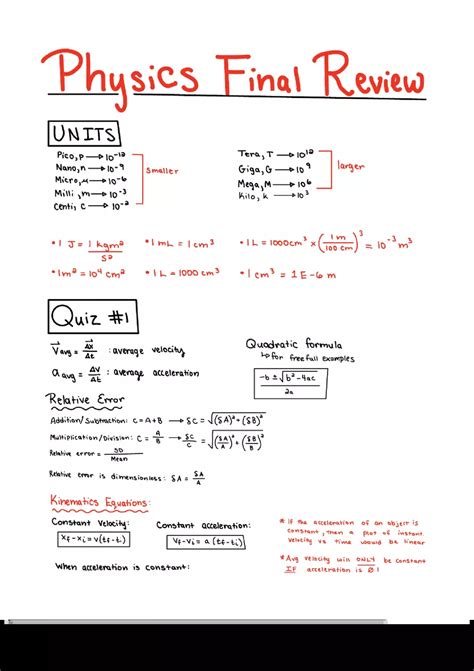 Physics Final Review
UNITS
Pico, p → 10⁻¹²
Nano, n → 10⁻⁹
Micro, μ → 10⁻⁶
Milli, m → 10⁻³
Centi, c → 10⁻²
smaller
Tera, T → 10¹²
Giga, G → 10⁹
Mega, M → 10⁶
Kilo, k → 10³
larger
• 1 J = 1 kgm²/s²
• 1 mL = 1 cm³
• 1 L = 1000cm³ × (1m/100 cm)³ = 10⁻³ m³
• 1m² = 10⁴ cm²
• 1L = 1000 cm³
• 1 cm³ = 1E-6 m
Quiz #1
V⃗avg = Δx⃗/Δt : average velocity
a avg = ΔV/Δt : average acceleration
Quadratic formula
↳ for freefall examples
-b ± √b²-4ac / 2a
Relative Error
Addition/Subtraction: C = A+B → δC = √(δA)² + (δB)²
Multiplication/Division: C = A/B → δC/C = √(δA/A)² + (δB/B)²
Relative error = SD/Mean
Relative error is dimensionless: δA = δA/A
Kinematics Equations:
Constant Velocity:
Xf-Xi = v(tf-ti)
Constant acceleration:
Vf-Vi = a(tf-ti)
* If the acceleration of an object is
constant, then a plot of instant.
velocity vs time would be linear
* Avg velocity will ONLY be constant
IF acceleration is Ø!
When acceleration is constant: